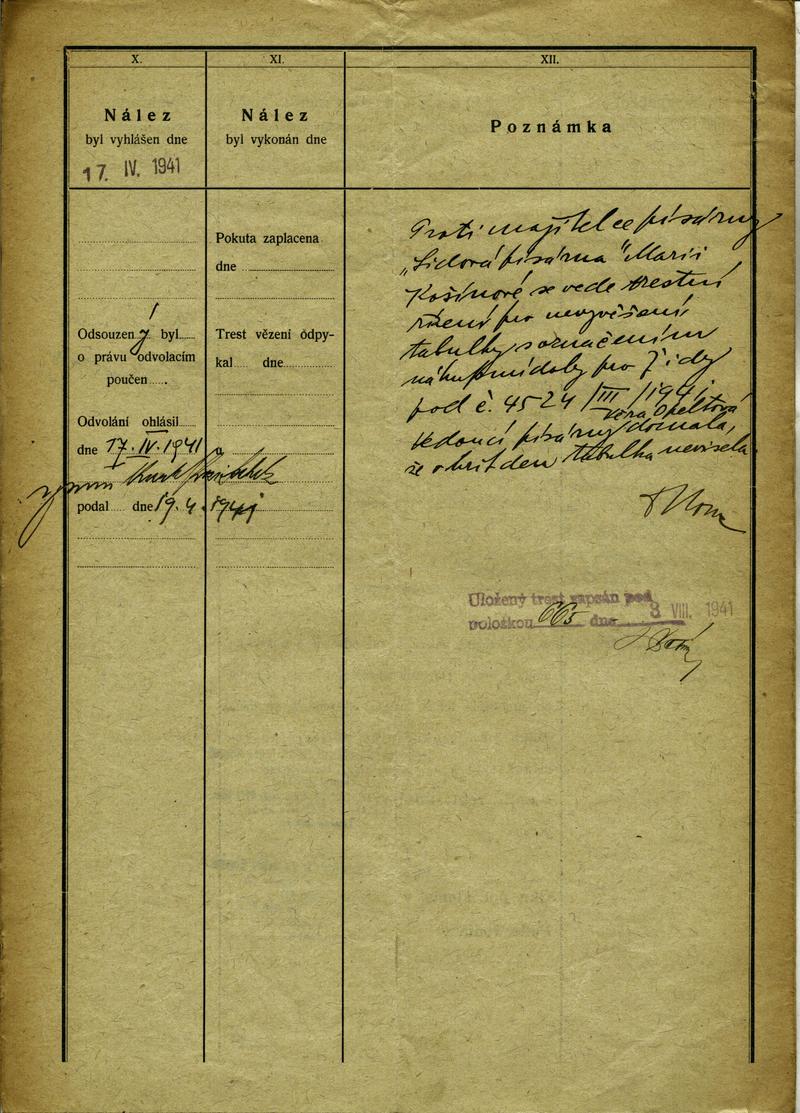 X.
XI.
XII.
Nález
byl vyhlášen dne
17. IV. 1941
Nález
byl vykonán dne
Poznámka
Odsouzen ý byl
o právu odvolacím
poučen
Odvolání ohlásil
dne 17. IV. 1941
podal dne 19. 4. 1941
Pokuta zaplacena
dne
Trest vězení odpy-
kal dne
Proti majitelce písárny
„Lidová písárna" Marii
Košínové se vede trestní
řízení pro nevyvěšení
tabulky s označením
nákupní doby pro Židy
pod č. 4524/III/1941
Věra Opeltová
Vedoucí písárny doznala,
že v kritden tabulka nevisela
Uložený trest zapsán pod
položkou 665 dne 8 VIII. 1941